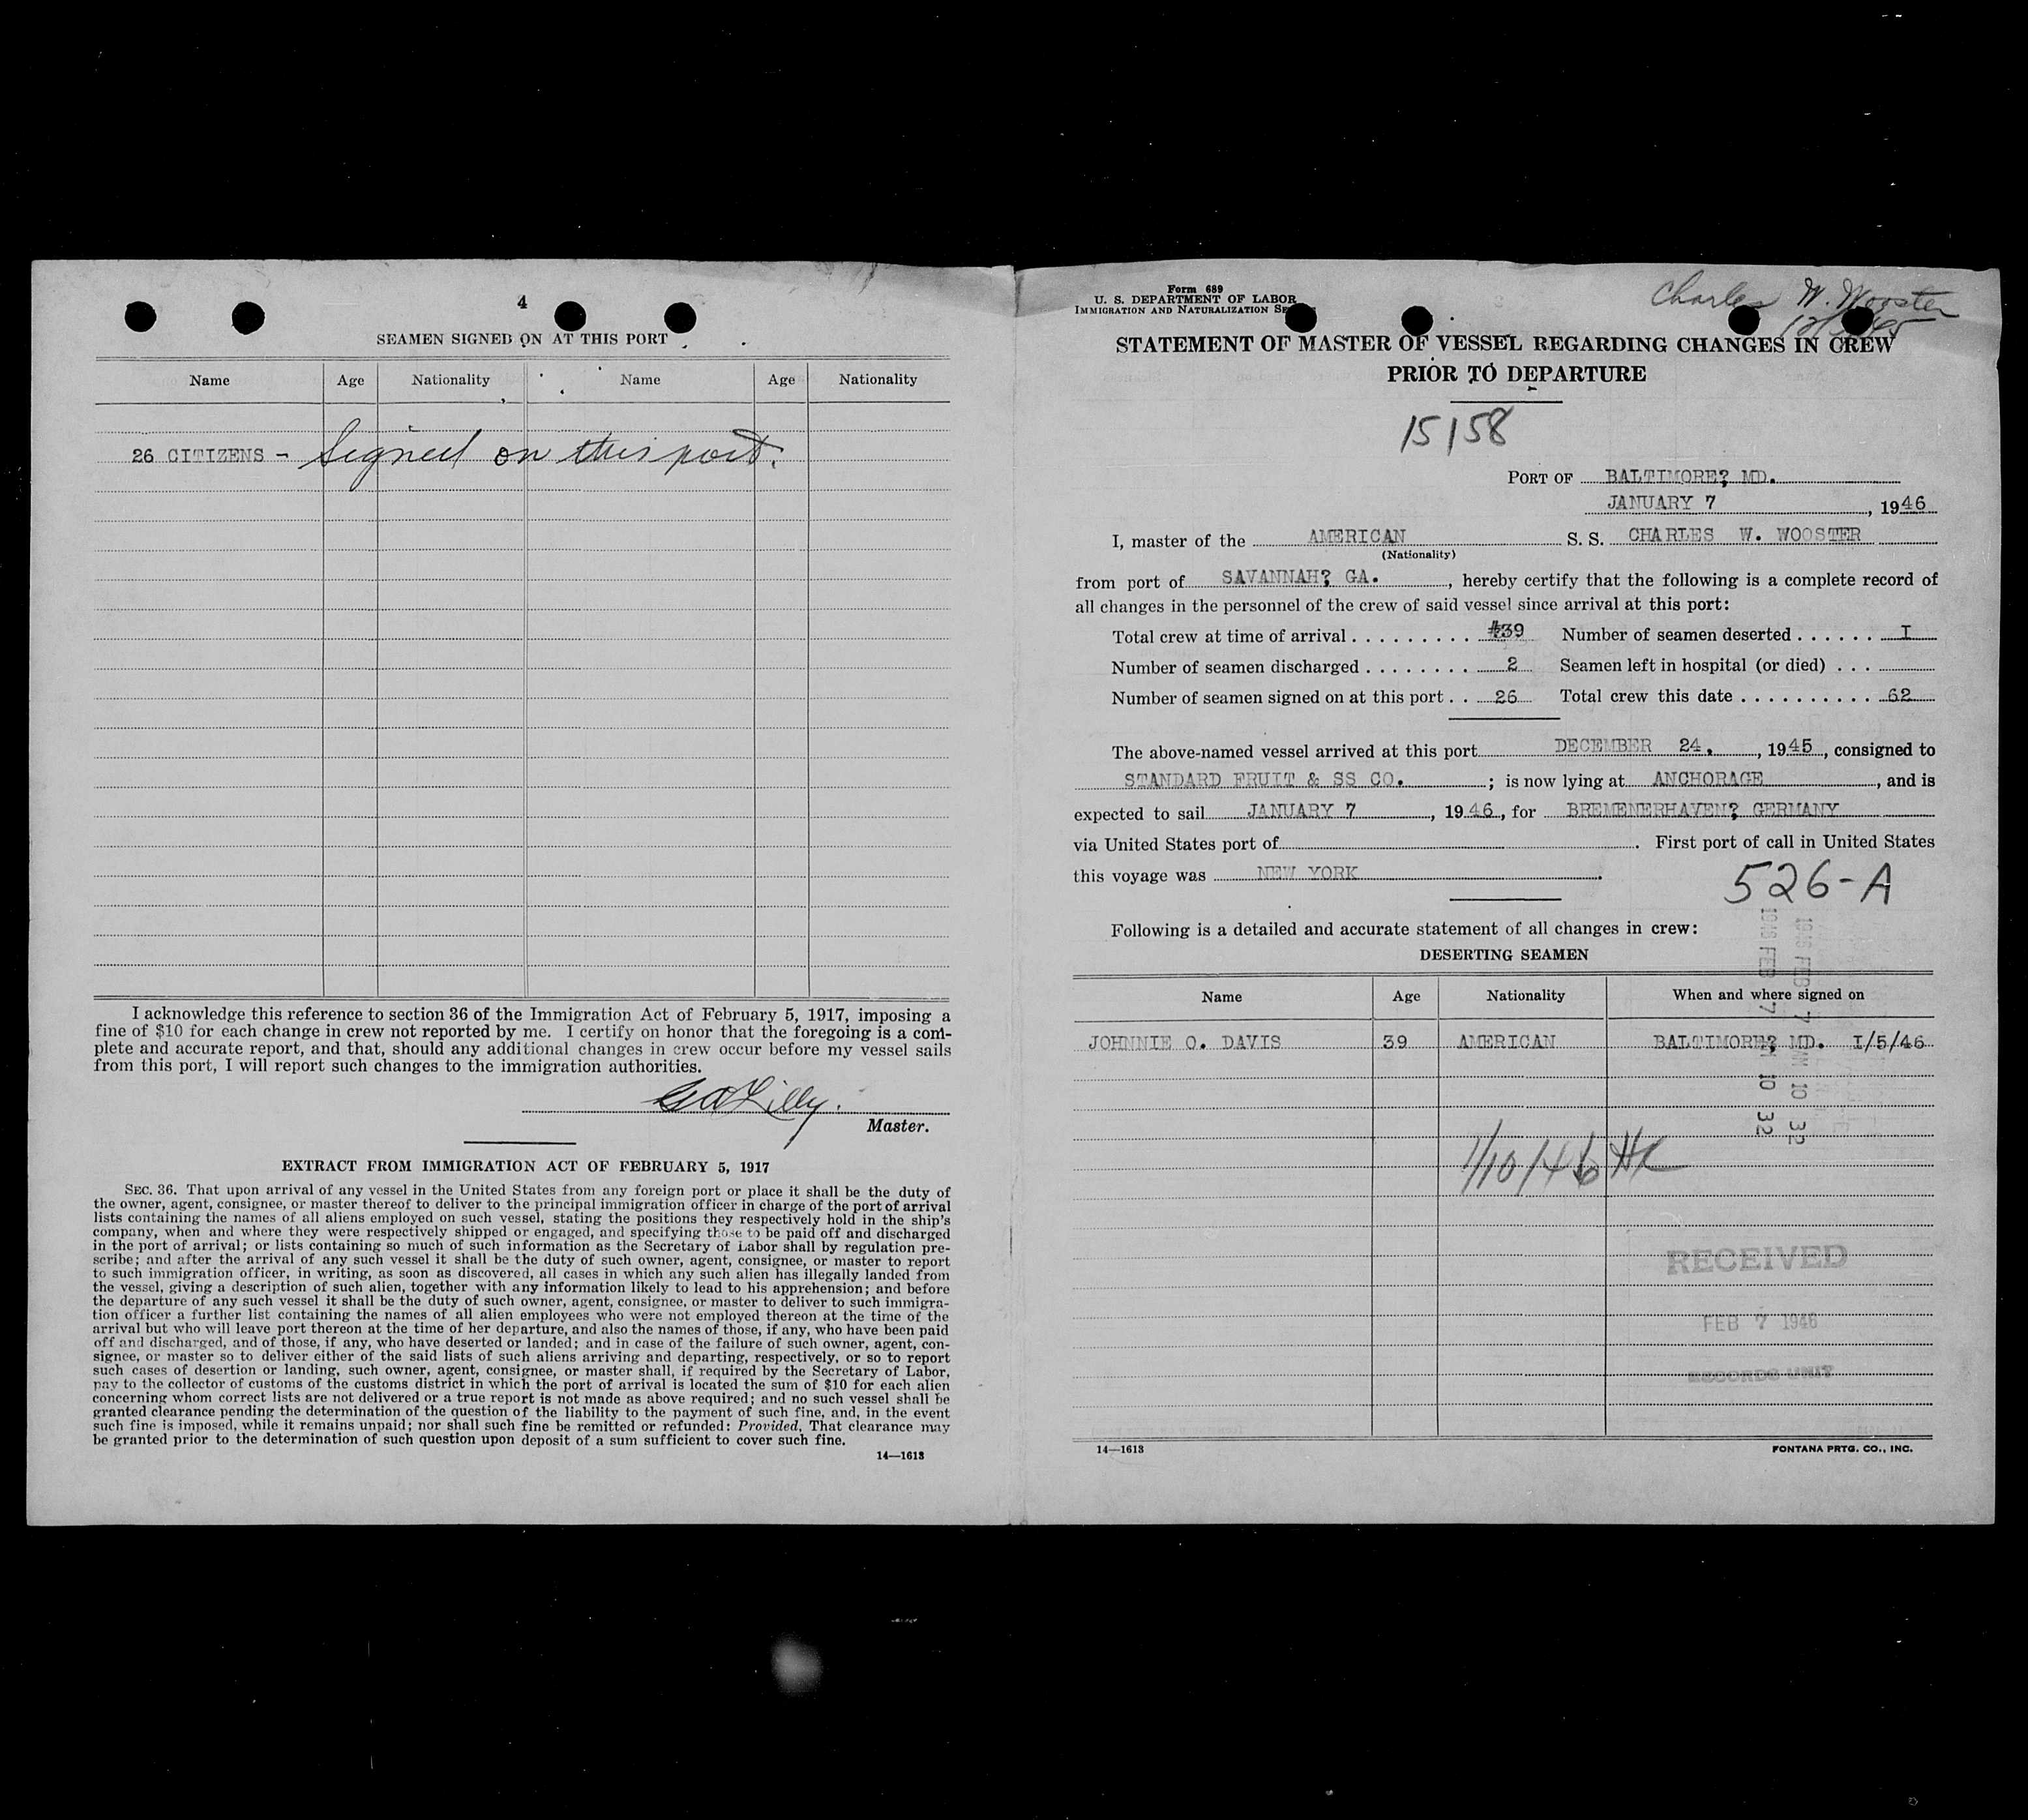 4
SEAMEN SIGNED ON AT THIS PORT
Name Age Nationality Name Age Nationality
26 CITIZENS - Signed on this port.
I acknowledge this reference to section 36 of the Immigration Act of February 5, 1917, imposing a
fine of $10 for each change in crew not reported by me. I certify on honor that the foregoing is a com-
plete and accurate report, and that, should any additional changes in crew occur before my vessel sails
from this port, I will report such changes to the immigration authorities.
Master.
EXTRACT FROM IMMIGRATION ACT OF FEBRUARY 5, 1917
SEC. 36. That upon arrival of any vessel in the United States from any foreign port or place it shall be the duty of
the owner, agent, consignee, or master thereof to deliver to the principal immigration officer in charge of the port of arrival
lists containing the names of all aliens employed on such vessel, stating the positions they respectively hold in the ship's
company, when and where they were respectively shipped or engaged, and specifying those to be paid off and discharged
in the port of arrival; or lists containing so much of such information as the Secretary of Labor shall by regulation pre-
scribe; and after the arrival of any such vessel it shall be the duty of such owner, agent, consignee, or master to report
to such immigration officer, in writing, as soon as discovered, all cases in which any such alien has illegally landed from
the vessel, giving a description of such alien, together with any information likely to lead to his apprehension; and before
the departure of any such vessel it shall be the duty of such owner, agent, consignee, or master to deliver to such immigra-
tion officer a further list containing the names of all alien employees who were not employed thereon at the time of the
arrival but who will leave port thereon at the time of her departure, and also the names of those, if any, who have been paid
off and discharged, and of those, if any, who have deserted or landed; and in case of the failure of such owner, agent, con-
signee, or master so to deliver either of the said lists of such aliens arriving and departing, respectively, or so to report
such cases of desertion or landing, such owner, agent, consignee, or master shall, if required by the Secretary of Labor,
pay to the collector of customs of the customs district in which the port of arrival is located the sum of $10 for each alien
concerning whom correct lists are not delivered or a true report is not made as above required; and no such vessel shall be
granted clearance pending the determination of the question of the liability to the payment of such fine, and, in the event
such fine is imposed, while it remains unpaid; nor shall such fine be remitted or refunded: Provided, That clearance may
be granted prior to the determination of such question upon deposit of a sum sufficient to cover such fine.
14—1613
Form 689
U. S. DEPARTMENT OF LABOR
IMMIGRATION AND NATURALIZATION SE
Charles W. Wooster
STATEMENT OF MASTER OF VESSEL REGARDING CHANGES IN CREW
PRIOR TO DEPARTURE
15158
PORT OF BALTIMORE? MD.
JANUARY 7, 1946
I, master of the AMERICAN S. S. CHARLES W. WOOSTER
(Nationality)
from port of SAVANNAH? GA., hereby certify that the following is a complete record of
all changes in the personnel of the crew of said vessel since arrival at this port:
Total crew at time of arrival . . . . . . . . . 39 Number of seamen deserted . . . . . . I
Number of seamen discharged . . . . . . . . 2 Seamen left in hospital (or died) . . .
Number of seamen signed on at this port . . 26 Total crew this date . . . . . . . . . . 62
The above-named vessel arrived at this port DECEMBER 24., 1945, consigned to
STANDARD FRUIT & SS CO. ; is now lying at ANCHORAGE, and is
expected to sail JANUARY 7, 1946, for BREMENERHAVEN? GERMANY
via United States port of . First port of call in United States
this voyage was NEW YORK.
526-A
Following is a detailed and accurate statement of all changes in crew:
DESERTING SEAMEN
Name Age Nationality When and where signed on
JOHNNIE O. DAVIS 39 AMERICAN BALTIMORE? MD. I/5/46
1946 FEB 7 AM 10 32
1946 FEB 7 AM 10 32
1/10/46
RECEIVED
FEB 7 1946
RECORDS UNIT
14—1613 FONTANA PRTG. CO., INC.